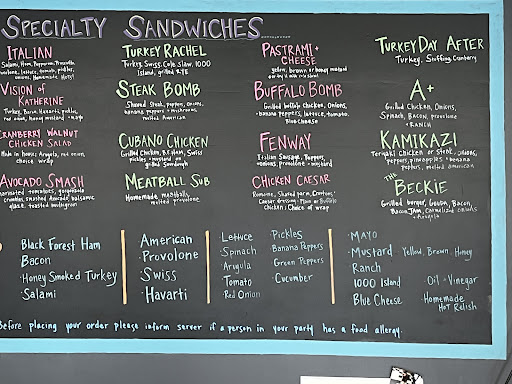 SPECIALTY SANDWICHES
ITALIAN
Salami, Ham, Pepperoni, Prosciutto
provolone, lettuce, tomato, pickles,
onions, Homemade Hots!
TURKEY RACHEL
Turkey, Swiss, Cole slaw, 1000
Island, grilled RYE
PASTRAMI +
CHEESE
yellow, brown or honey mustard
TURKEY DAY AFTER
Turkey, Stuffing, Cranberry
VISION OF
KATHERINE
Turkey, Bacon, Havarti, pickles,
red onion, honey mustard
STEAK BOMB
Shaved Steak, peppers, onions,
banana peppers + mushrooms
melted American
BUFFALO BOMB
Grilled buffalo chicken, onions,
banana peppers, lettuce, tomato,
Blue cheese
A+
Grilled Chicken, Onions,
Spinach, Bacon, provolone
+ RANCH
CRANBERRY WALNUT
CHICKEN SALAD
Made in house; Arugula, red onion,
choice wrap
CUBANO CHICKEN
Grilled Chicken, B.F. Ham, Swiss
pickles + mustard on
grilled Sourdough
FENWAY
Italian Sausage, Peppers,
onions, provolone + mustard
KAMIKAZI
Teriyaki chicken or steak, onions,
peppers, pineapples + banana
peppers, melted american
AVOCADO SMASH
marinated tomatoes, gorgonzola
crumbles, smashed Avocado, balsamic
glaze, toasted multigrain
MEATBALL SUB
Homemade meatballs,
melted provolone
CHICKEN CAESAR
Romaine, Shaved parm, Croutons,
Caesar dressing. Plain or Buffalo
chicken; Choice of wrap
THE BECKIE
Grilled burger, Gouda, Bacon,
Bacon Jam, Caramelized onions
+ Arugula
Black Forest Ham
Bacon
·Honey Smoked Turkey
Salami
American
·Provolone
·Swiss
·Havarti
Lettuce
·Spinach
Arugula
Tomato
·Red Onion
·Pickles
·Banana Peppers
·Green Peppers
·Cucumber
·MAYO
·Mustard Yellow, Brown, Honey
Ranch
1000 Island
Blue Cheese
Oil + Vinegar
·Homemade
HOT Relish
Before placing your order please inform server if a person in your party has a food allergy.